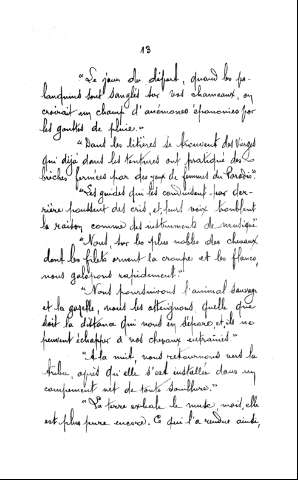 13
"Le jour du départ, quand les pa-
lanquins sont sanglés sur vos chameaux, on
croirait un champ d'anémones épanouies par
les gouttes de pluie."
"Dans les litières se trouvent des Vierges
qui déjà dans les tentures ont pratiqué des
brèches formées par des yeux de femmes du Paradis."
"Les guides qui les conduisent par der-
rière poussent des cris, et leurs voix troublent
la raison comme des instruments de musique"
"Nous, sur les plus nobles des chevaux
dont les filets ornent la croupe et les flancs,
nous galopons rapidement."
"Nous poursuivons l'animal sauvage
et la gazelle, nous les atteignons quelle que
soit la distance qui nous en sépare, et ils ne
peuvent échapper à nos chevaux entraînés."
"A la nuit, nous retournons vers la
tribu, après qu'elle s'est installée dans un
campement net de toute souillure."
"La terre exhale le musc, mais, elle
est plus pure encore. Ce qui l'a rendue ainsi,